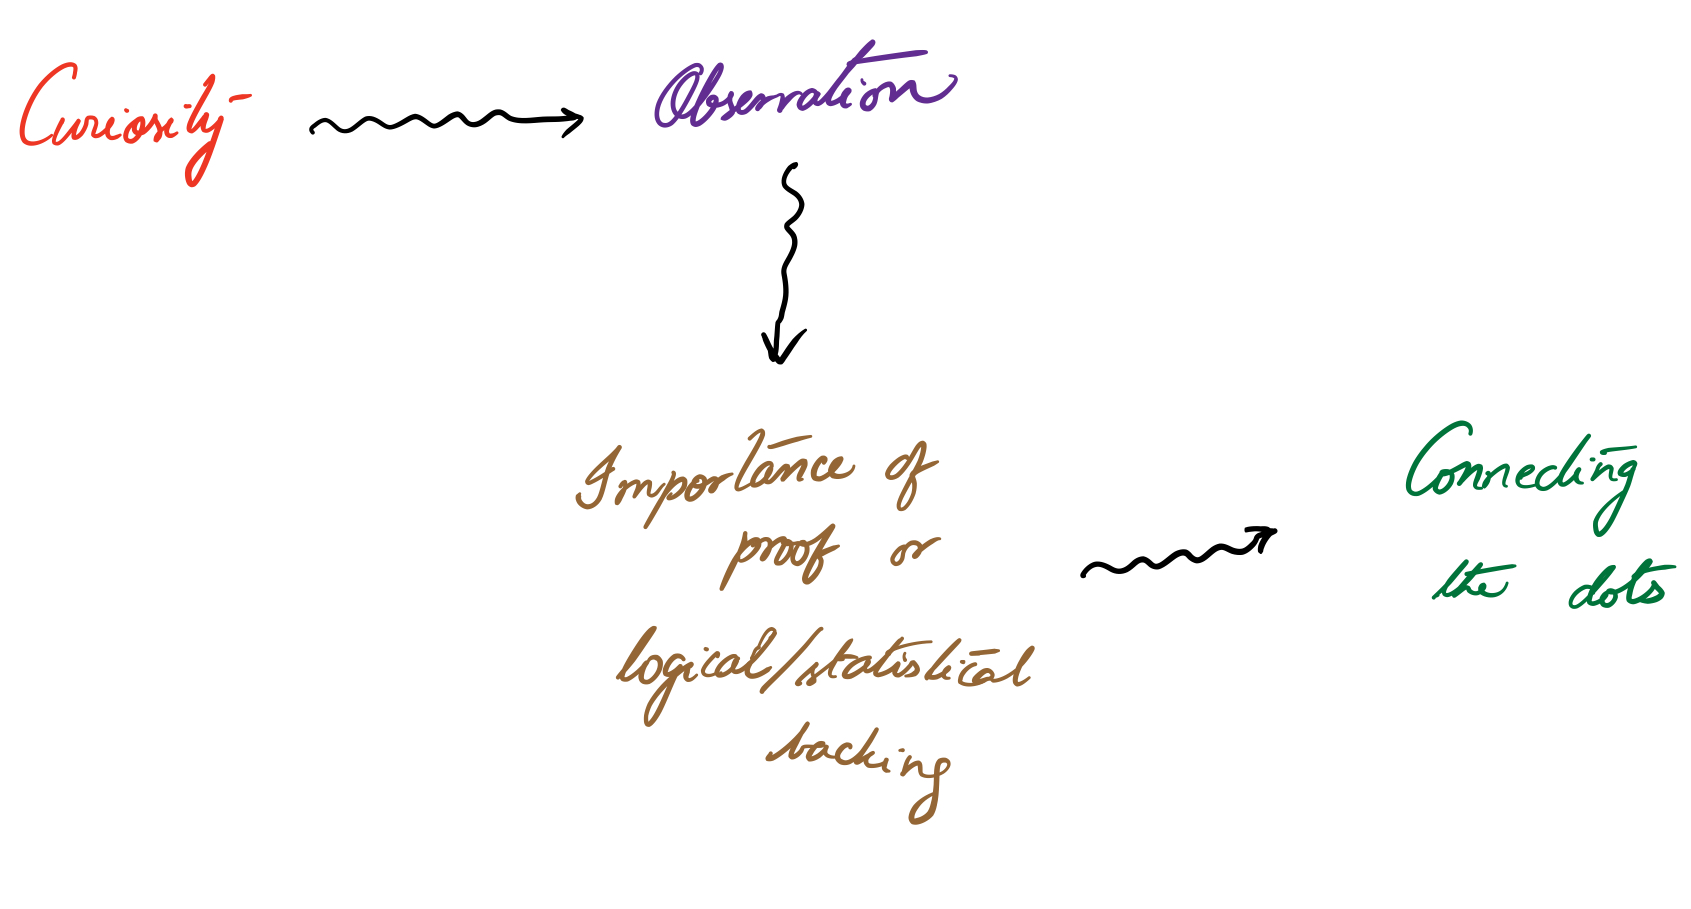 Curiosity
Observation
Importance of
proof or
logical/statistical
backing
Connecting
the dots